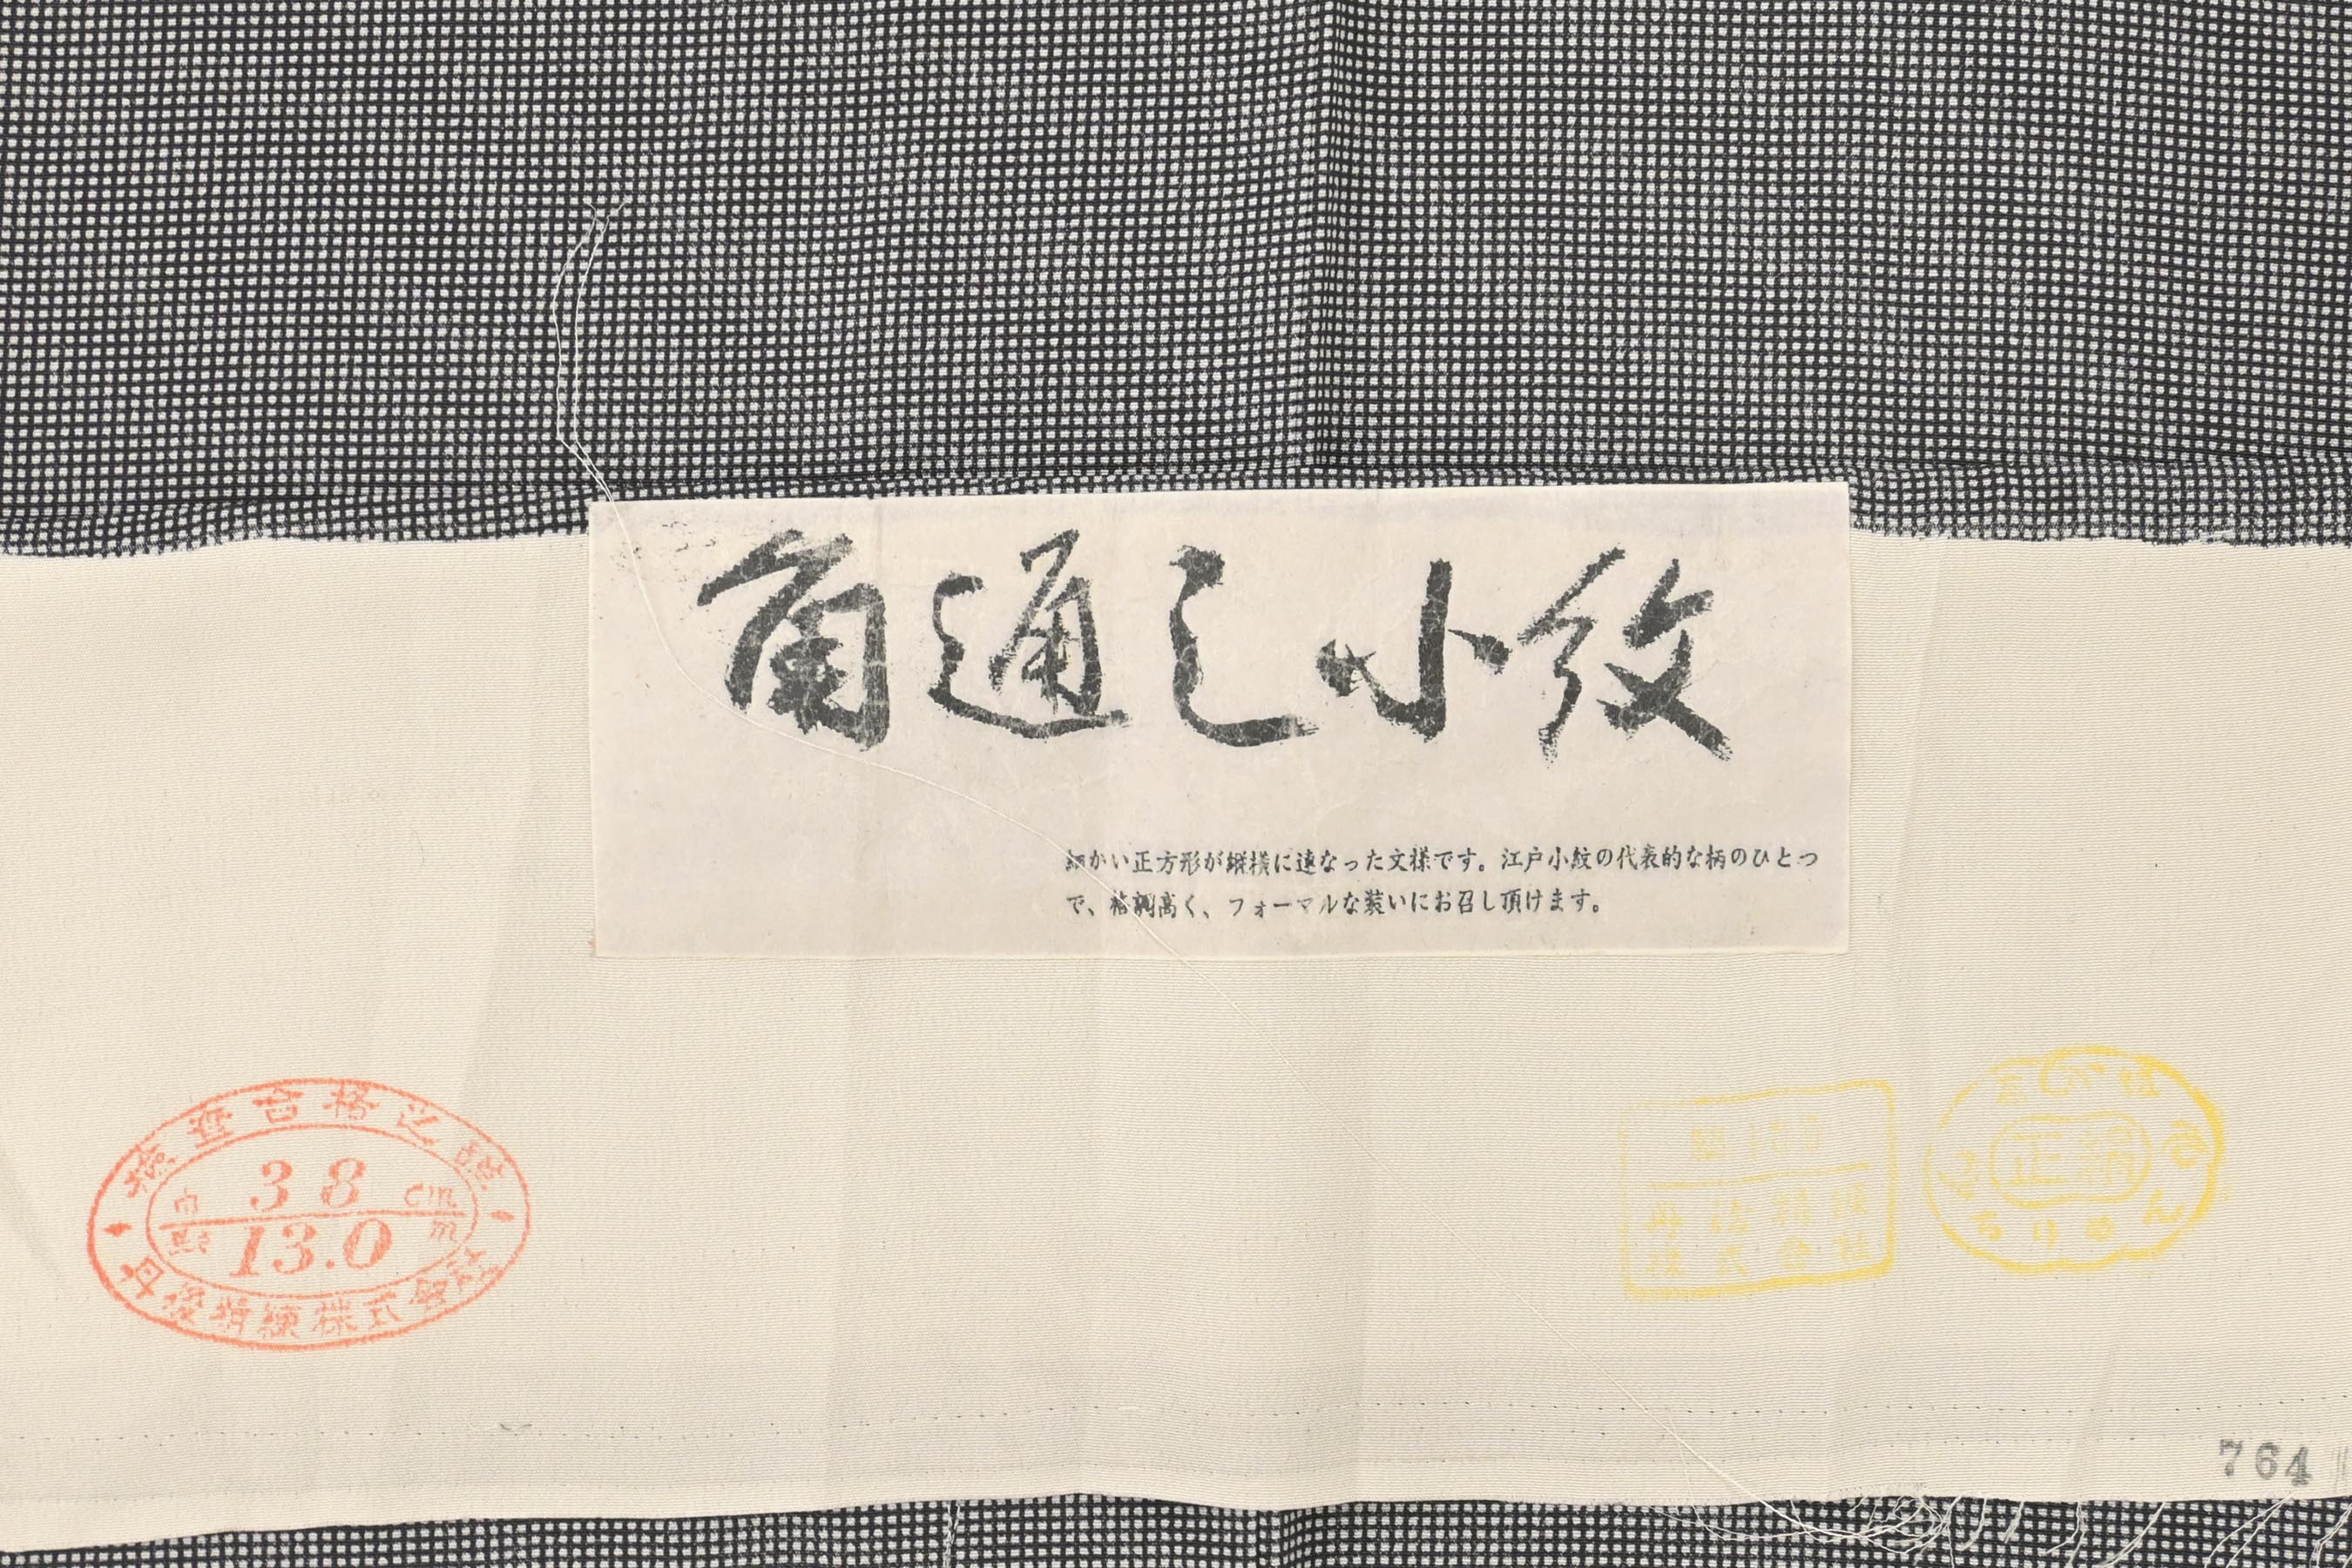 角通し小紋
細かい正方形が縦横に連なった文様です。江戸小紋の代表的な柄のひとつ
で、格調高く、フォーマルな装いにお召し頂けます。
検査合格之証
巾 38 cm
13.0 m
丹後精練株式会社
正絹
ちりめん
丹後精練
株式会社
764